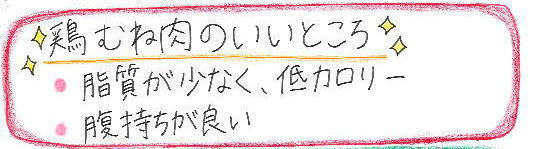 鶏むね肉のいいところ
・脂質が少なく、低カロリー
・腹持ちが良い